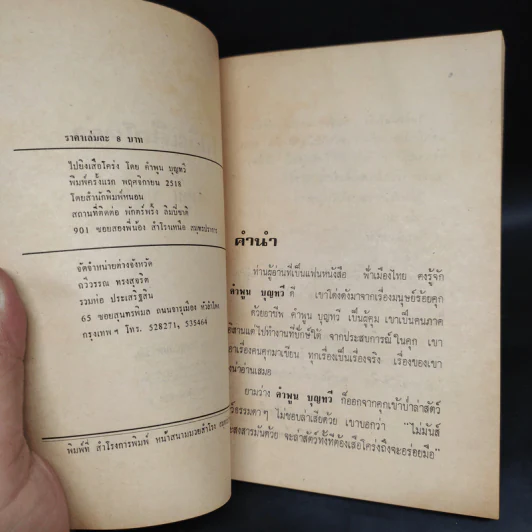 ราคาเล่มละ 8 บาท
ไปยิงเสือโคร่ง โดย คำพูน บุญทวี
พิมพ์ครั้งแรก พฤศจิกายน 2518
โดยสำนักพิมพ์หนอน
สถานที่ติดต่อ พักตร์พริ้ง ลิมป์ชาติ
901 ซอยสองพี่น้อง สำโรงเหนือ สมุทรปราการ
จัดจำหน่ายต่างจังหวัด
ถวิวรรณ ทรงสุจริต
รวมห่อ ประเสริฐสิน
65 ซอยสุนทรพิมล ถนนจารุเมือง หัวลำโพง
กรุงเทพฯ โทร. 528271, 535464
พิมพ์ที่ สำโรงการพิมพ์ หน้าสนามมวยสำโรง
คำนำ
ท่านผู้อ่านที่เป็นแฟนหนังสือ ฟ้าเมืองไทย คงรู้จัก
คำพูน บุญทวี ดี เขาโด่งดังมาจากเรื่องมนุษย์ร้อยคุก
ด้วยอาชีพ คำพูน บุญทวี เป็นผู้คุม เขาเป็นคนภาค
อีสานแต่ไปทำงานที่ปักษ์ใต้ จากประสบการณ์ในคุก เขา
เรื่องคนคุกมาเขียน ทุกเรื่องเป็นเรื่องจริง เรื่องของเขา
น่าอ่านเสมอ
ยามว่าง คำพูน บุญทวี ก็ออกจากคุกเข้าป่าล่าสัตว์
ธรรมดาๆ ไม่ชอบล่าเสียด้วย เขาบอกว่า "ไม่มันส์
สงสารมันด้วย จะล่าสัตว์ทั้งทีต้องเสือโคร่งถึงจะอร่อยมือ"